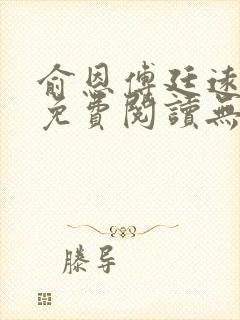 俞恩傅廷遠
免費閱讀無
滕导